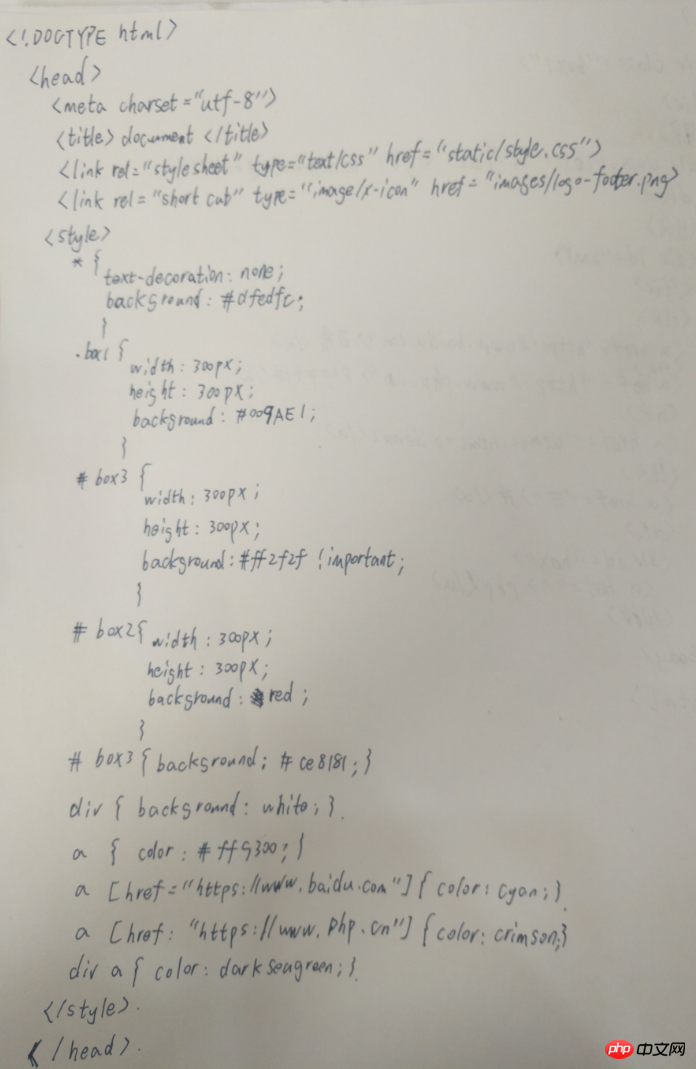 <!DOCTYPE html>
<head>
<meta charset="utf-8">
<title> document </title>
<link rel="style sheet" type="text/css" href="static/style.css">
<link rel="short cut" type="image/x-icon" href="images/logo-footer.png>
<style>
* {
text-decoration: none;
background: #dfedfc;
}
.box1 {
width: 300px;
height: 300px;
background: #009AE1;
}
# box3 {
width: 300px;
height: 300px;
background: #ff2f2f !important;
}
# box2 { width: 300px;
height: 300px;
background: red ;
}
# box3 { background: #ce8181; }
div { background: white; }.
a { color: #ff9300; }
a [href="https://www.baidu.com"] { color: cyan; }.
a [href: "https://www.php.cn"] { color: crimson;}
div a { color: darkseagreen; }.
</style>.
</head>.
php 中文网